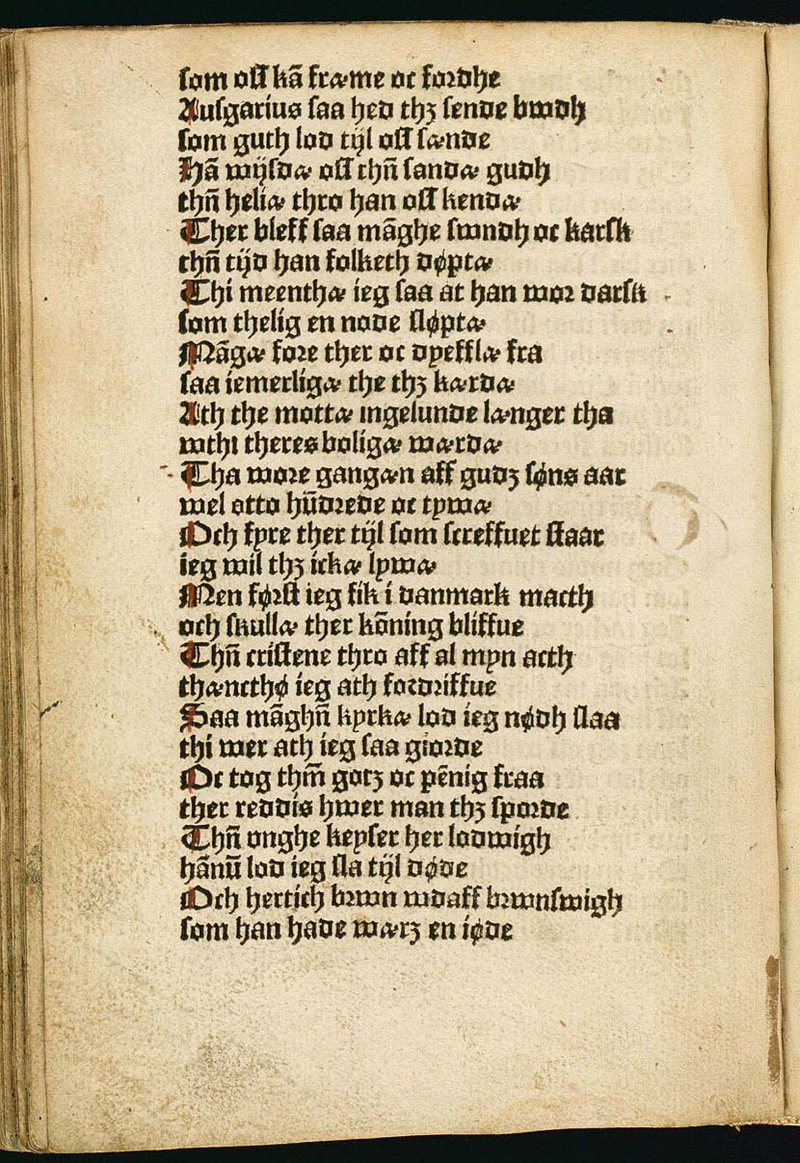 som oss kā fræme oc fordhe
Ausgarius saa hed thꝫ sende bwdh
som guth lod tijl oss sænde
Hā wijsdæ oss thn̄ sandæ gudh
thn̄ heliæ thro han oss kendæ
Ther bleff saa māghe swndh oc karsk
thn̄ tijd han folketh døptæ
Thi meenthæ ieg saa at han wor darsk
som thelig en node sløptæ
Māgæ fore ther oc dyefflæ fra
saa iemerligæ the thꝫ kærdæ
Ath the mottæ ingelunde længer tha
wthi theres boligæ wærdæ
Tha wore gangæn aff gudꝫ søns aar
wel otto hūdrede oc tymæ
Och fyre ther tijl som screffuet staar
ieg wil thꝫ ickæ lymæ
Men først ieg fik i danmark macth
och skullæ ther kōning bliffue
Thn̄ cristene thro aff al myn acth
thæncthø ieg ath fordriffue
Saa māghn̄ kyrkæ lod ieg nødh slaa
thi wer ath ieg saa giorde
Oc tog thm̄ gotꝫ oc pēnig fraa
ther reddis hwer man thꝫ sporde
Thn̄ vnghe keyser her lodwigh
hānū lod ieg sla tijl døde
Och hertich brwn wdaff brwnswigh
som han hade wærꝫ en iøde